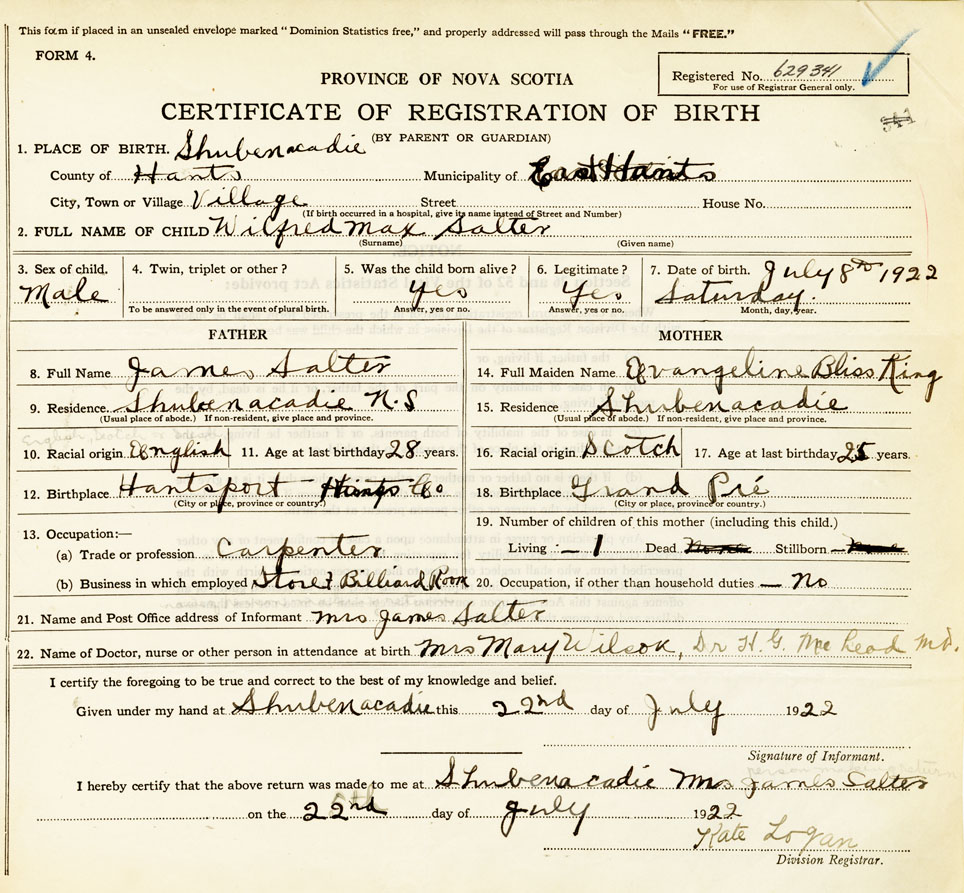 This form if placed in an unsealed envelope marked "Dominion Statistics free," and properly addressed will pass through the Mails "FREE."
FORM 4.
PROVINCE OF NOVA SCOTIA
Registered No. 629341
For use of Registrar General only.
CERTIFICATE OF REGISTRATION OF BIRTH
(BY PARENT OR GUARDIAN)
1. PLACE OF BIRTH. Shubenacadie
County of Hants Municipality of East Hants
City, Town or Village Village Street House No.
(If birth occurred in a hospital, give its name instead of Street and Number)
2. FULL NAME OF CHILD Wilfred Max Salter
(Surname) (Given name)
3. Sex of child. 4. Twin, triplet or other? 5. Was the child born alive? 6. Legitimate? 7. Date of birth. July 8th 1922
Male yes Yes Saturday.
To be answered only in the event of plural birth. Answer, yes or no. Answer, yes or no. Month, day, year.
FATHER MOTHER
8. Full Name James Salter 14. Full Maiden Name Evangeline Bliss King
9. Residence. Shubenacadie N.S 15. Residence Shubenacadie
(Usual place of abode.) If non-resident, give place and province. (Usual place of abode.) If non-resident, give place and province.
10. Racial origin English 11. Age at last birthday 28 years. 16. Racial origin Scotch 17. Age at last birthday 25 years.
12. Birthplace Hantsport - Hants Co 18. Birthplace Grand Pré
(City or place, province or country.) (City or place, province or country.)
13. Occupation:— 19. Number of children of this mother (including this child.)
(a) Trade or profession Carpenter Living - 1 Dead None Stillborn - None
(b) Business in which employed Store & Billiard Room 20. Occupation, if other than household duties — No
21. Name and Post Office address of Informant Mrs James Salter
22. Name of Doctor, nurse or other person in attendance at birth Mrs Mary Wilson, Dr H. G. Mac Read M.D.
I certify the foregoing to be true and correct to the best of my knowledge and belief.
Given under my hand at Shubenacadie this 22nd day of July 1922
Signature of Informant.
I hereby certify that the above return was made to me at Shubenacadie Mrs James Salter
on the 22nd day of July 1922
Kate Logan
Division Registrar.